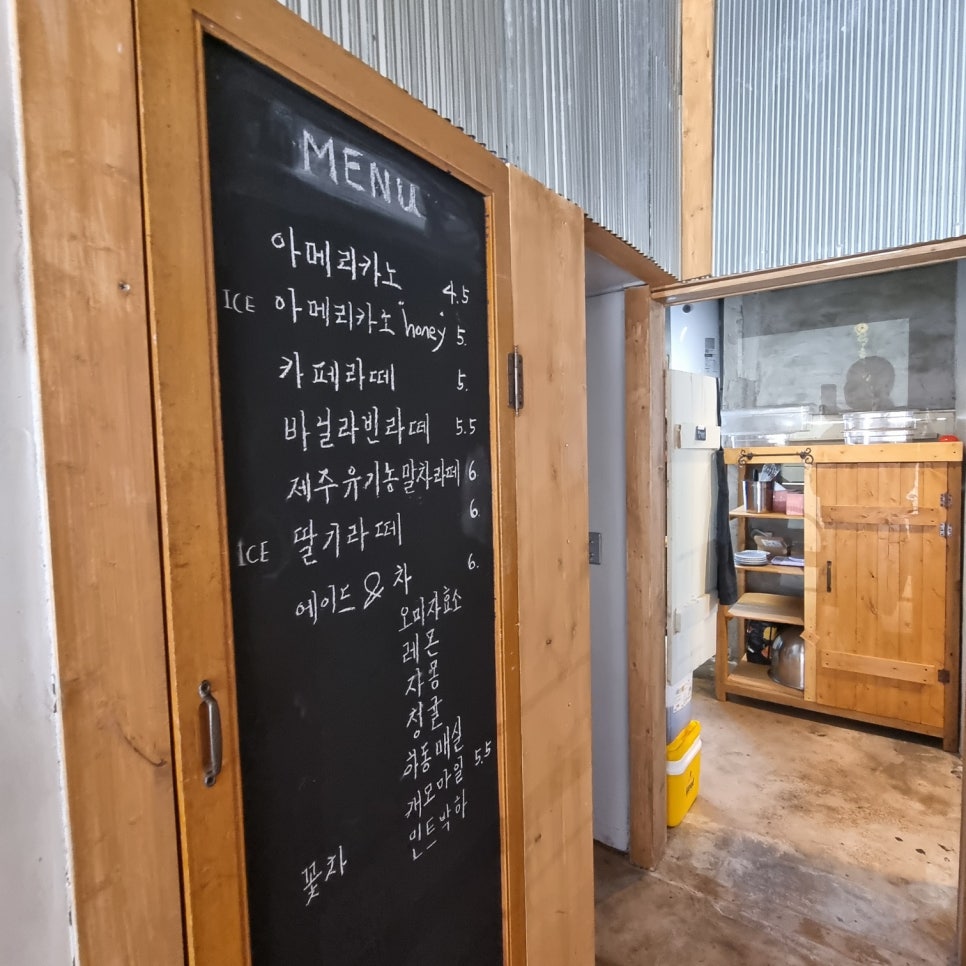 MENU
아메리카노 4.5
ICE 아메리카노 "honey" 5.
카페라떼 5.
바닐라빈라떼 5.5
제주유기농말차라떼 6
ICE 딸기라떼 6.
에이드 & 차 6.
오미자효소
레몬
자몽
청귤
하동매실
캐모마일 5.5
민트박하
꽃차